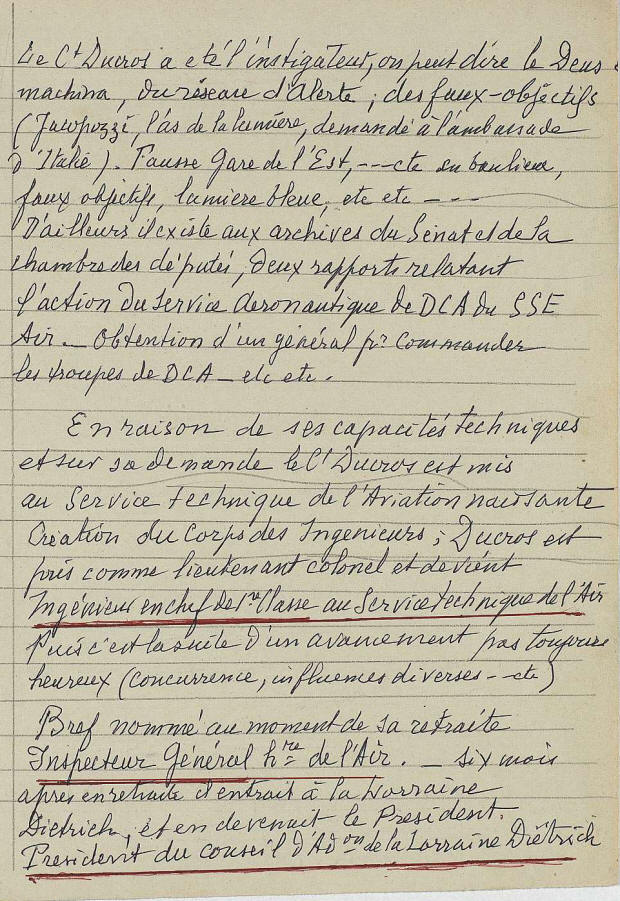 Le Ct Ducros a eté l'instigateur, on peut dire le Deus
machina, du réseau d'Alerte ; des faux-objectifs
(Jacopozzi, l'as de la lumière, demandé à l'ambassade
d'Italie). Fausse Gare de l'Est, --- etc en banlieue,
faux objectifs, lumière bleue, etc etc - - -
D'ailleurs il existe aux archives du Sénat et de la
chambre des députés, deux rapports relatant
l'action du Service Aeronautique de DCA du SSE
Air. - Obtention d'un général pr commander
les troupes de DCA - etc etc.
En raison de ses capacités techniques
et sur sa demande le Ct Ducros est mis
au Service technique de l'Aviation naissante
Création du Corps des Ingenieurs ; Ducros est
pris comme lieutenant colonel et devient
Ingénieur en chef de 1re Classe au Service technique de l'Air
Puis c'est la suite d'un avancement pas toujours
heureux (concurrence, influences diverses - - etc)
Bref nommé au moment de sa retraite
Inspecteur Général hre de l'Air. - six mois
après en retraite il entrait à la Lorraine
Dietrich, et en devenait le President.
President du conseil d'Adon de la Lorraine Diétrich